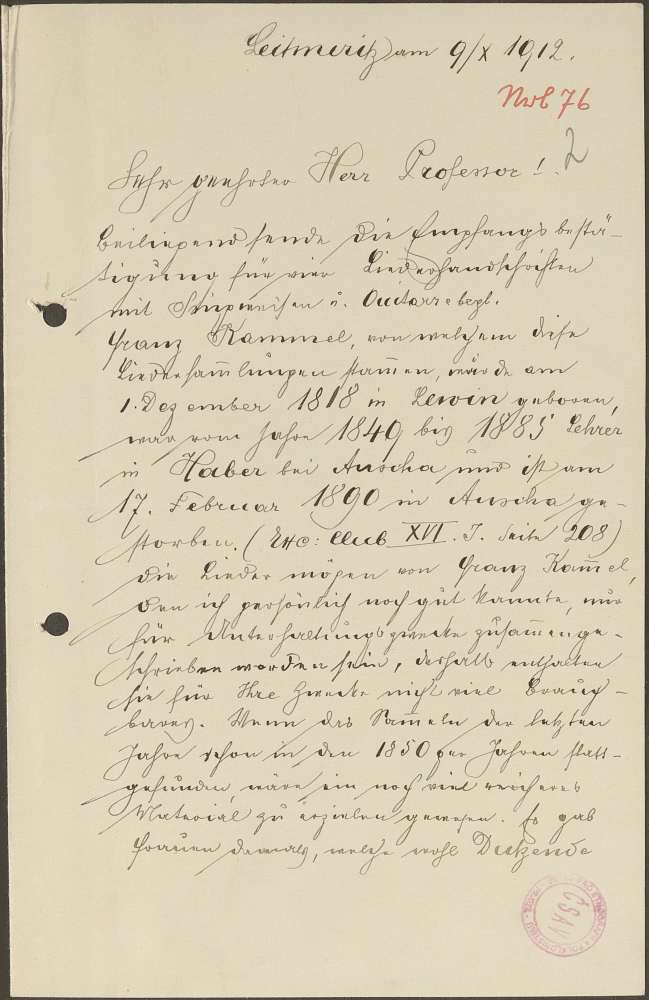 Leitmeritz am 9/X 1912.
Nrb 76
2
Sehr geehrter Herr Professor!
Beiliegend sende die Empfangsbestä-
tigung für vier Liederhandschriften
mit Singweisen u. Guitarrebegl.
Franz Rammel, von welchem diese
Liedersammlungen stammen, wurde am
1. Dezember 1818 in Lewin geboren,
war vom Jahre 1849 bis 1885 Lehrer
in Haber bei Auscha und ist am
17. Februar 1890 in Auscha ge-
storben. (Exc: Club XVI. J. Seite 208)
Die Lieder mögen von Franz Ram̄el,
den ich persönlich noch gut kannte, nur
für Unterhaltungszwecke zusam̄enge-
schrieben worden sein, deshalb enthalten
sie für Ihre Zwecke nicht viel Brauch-
bares. Wenn das Sam̄eln der letzten
Jahre schon in den 1850ger Jahren statt-
gefunden, wäre ein noch viel reicheres
Material zu erzielen gewesen. Es gab
Frauen damals, welche wohl Dutzende
ČSAV